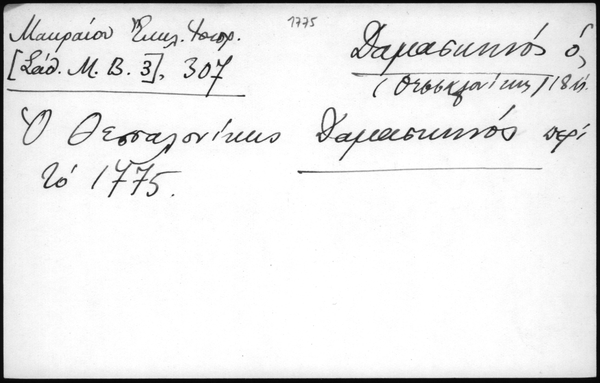 Μακραίου Ἐκκλ. Ἱστορ.
[Σάθ. Μ. Β. 3], 307
1775
Δαμασκηνός ὁ,
(Θεσσαλονίκης) 18
Ὁ Θεσσαλονίκης Δαμασκηνός περί
τό 1775.